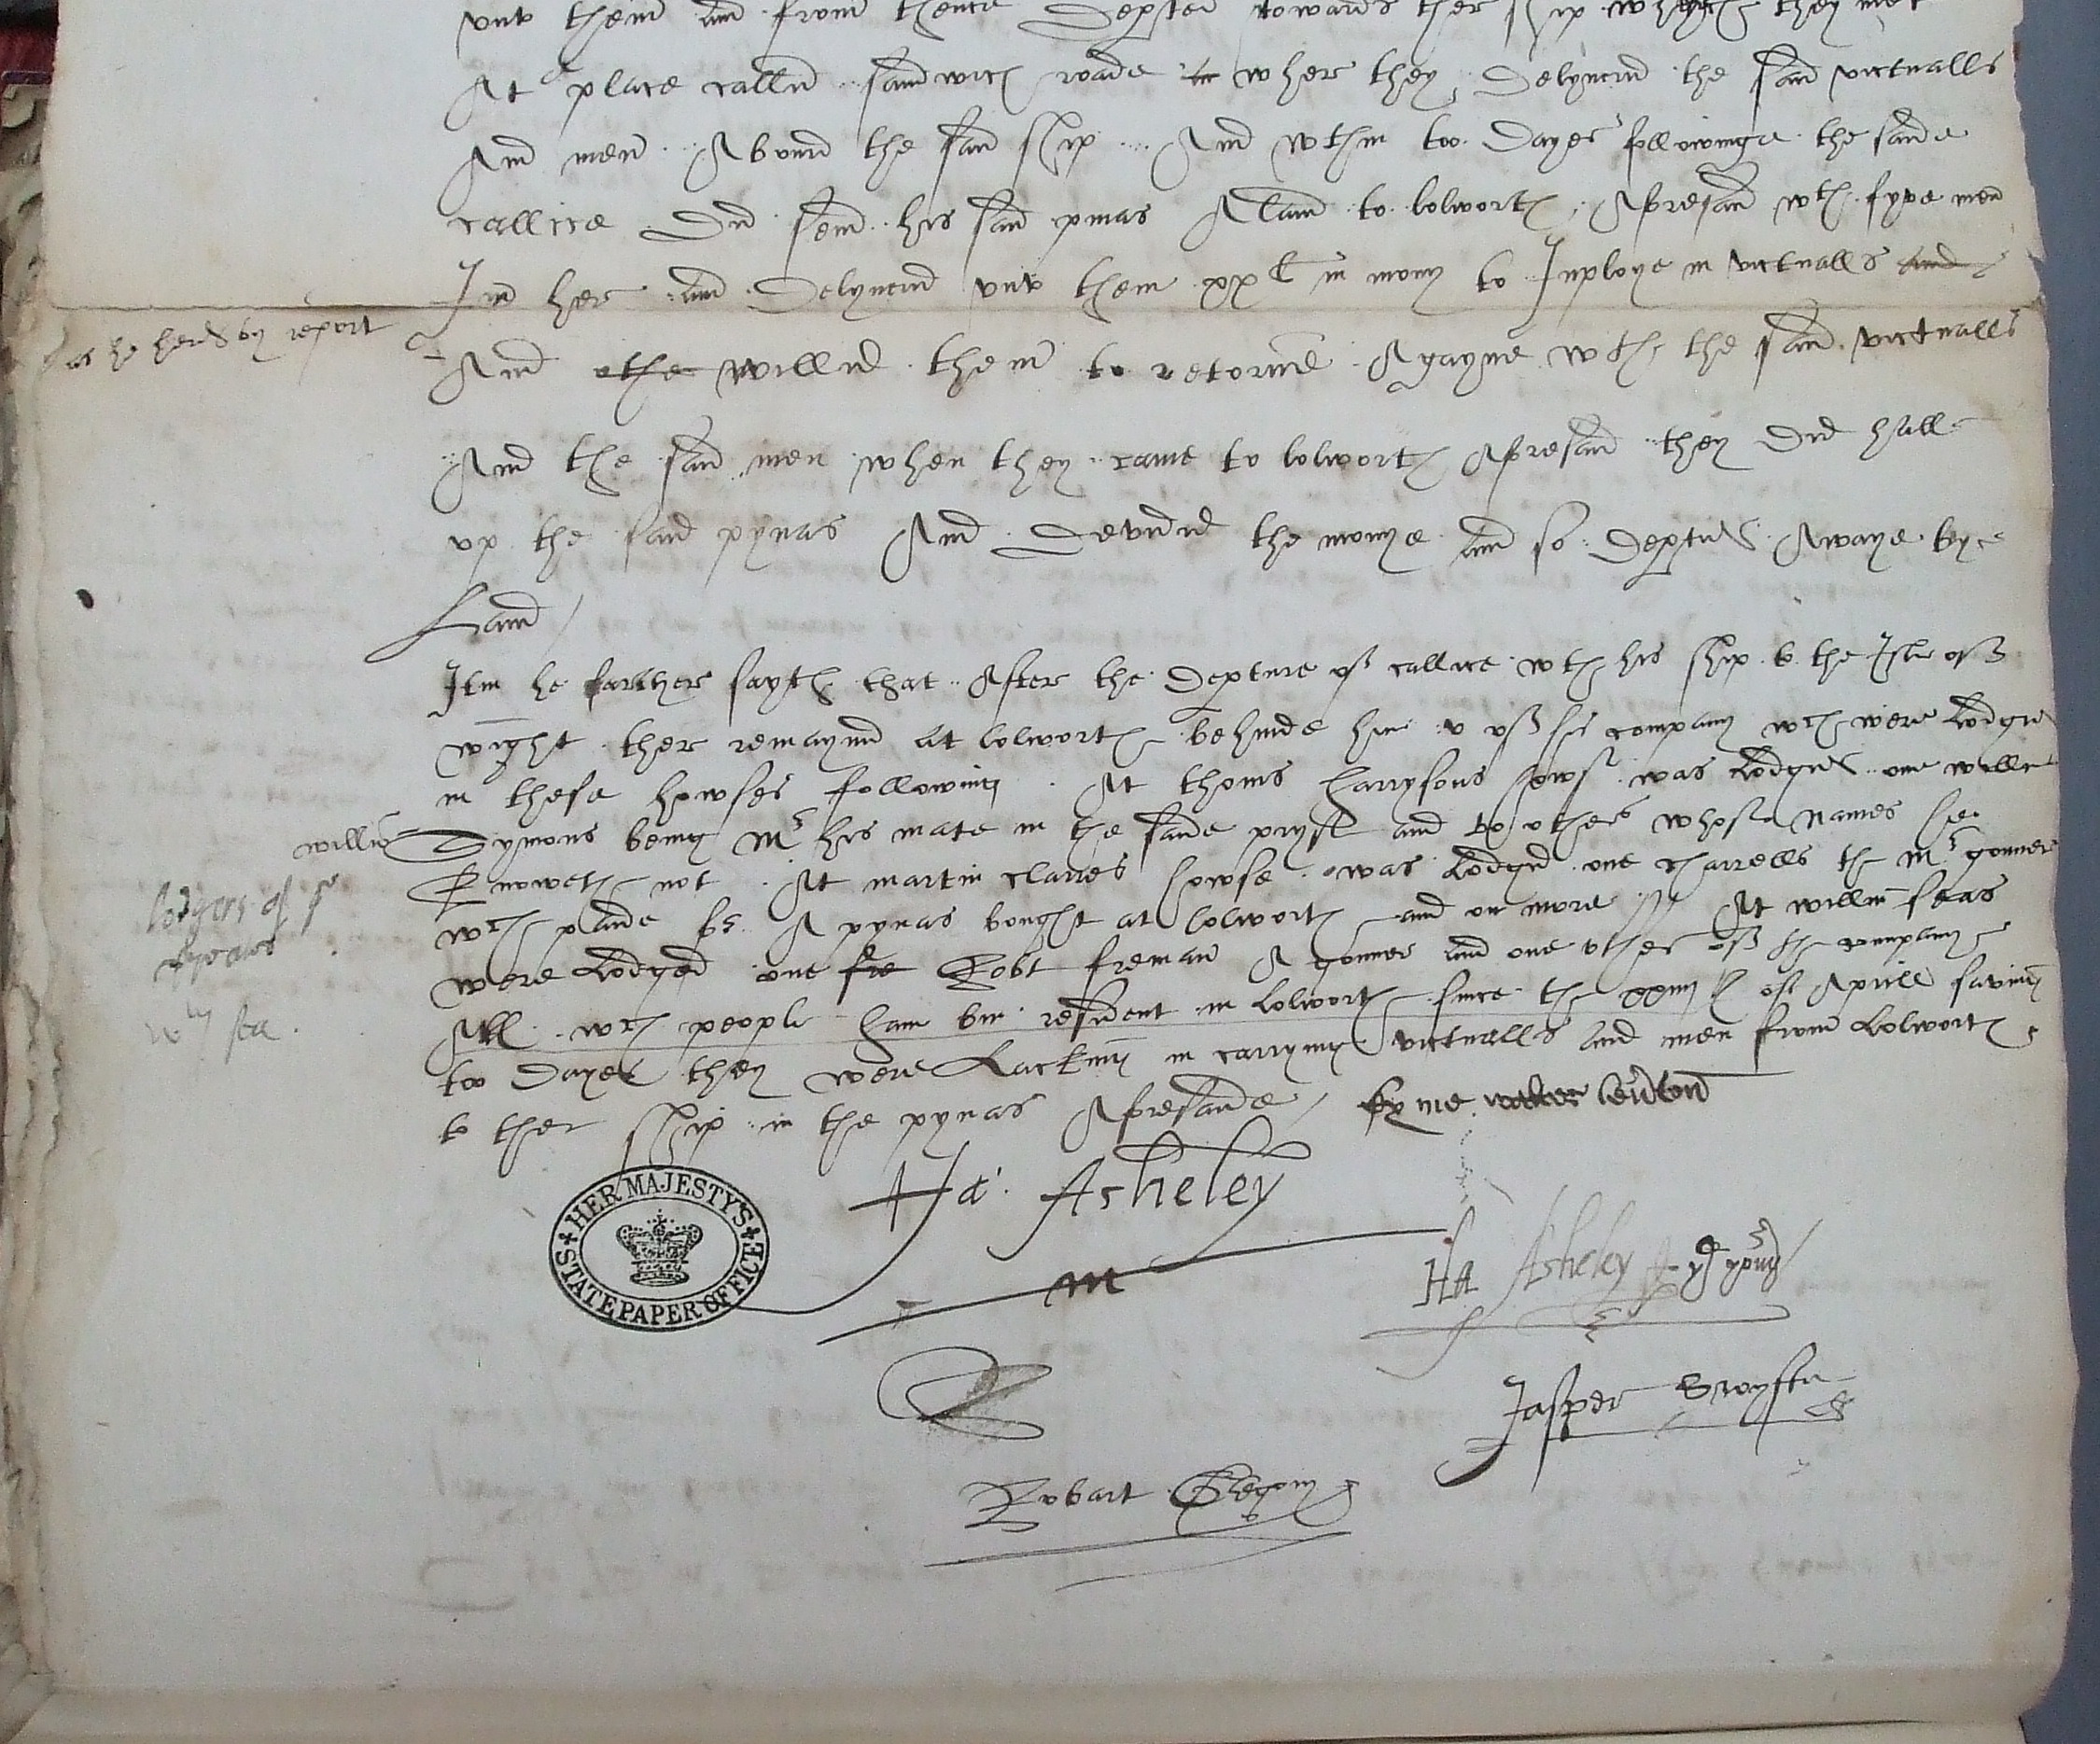 vnto them and from thence depted towards ther ship whych they met
At a place callid sandwich roade wher they delyuerid the said victualls
And men Abourd the said ship And wthin too dayes followinge the saide
callice did send his said pinas Aland to lolworth Aforesaid wth fyve men
In her and delyuerid vnto them xx li in mony to Inploye in victualls and
as he herd by report
And othe willid them to retorne Agayne wth the said victualls
And the said men when they came to lolworth Aforesaid they did hall
vp the said pynas And devidid the monye and so deptid Awaye bye
Land
Itm he farther sayth that After the depture of callice wth his ship to the Isle of
wight ther remaynid at lolworth behinde him v of his company wch were Lodgid
in these howses following At thoms harrysons hows was Lodgid one willm
willm Symons being Mr his mate in the saide pryse and to others whose names he
knoweth not At martin clarces howse was Lodgid one charrells the mr gonner
wch paide for A pynas bought at lolworth and on more At willm seas
lodgers of
pyrats
were Lodged one fre Robt freman A gonner and one other of the company
All wch people haue bin resident in lolworth since the xxiiij of Aprill saving
wm sea
too dayes they were Lacking in carrying victualls and men from Lolworth
to ther ship in the pynas Aforesaide by me
HER MAJESTY'S
STATE PAPER OFFICE
Ha: Asheley
m
HA Asheley
Jasper
Robart